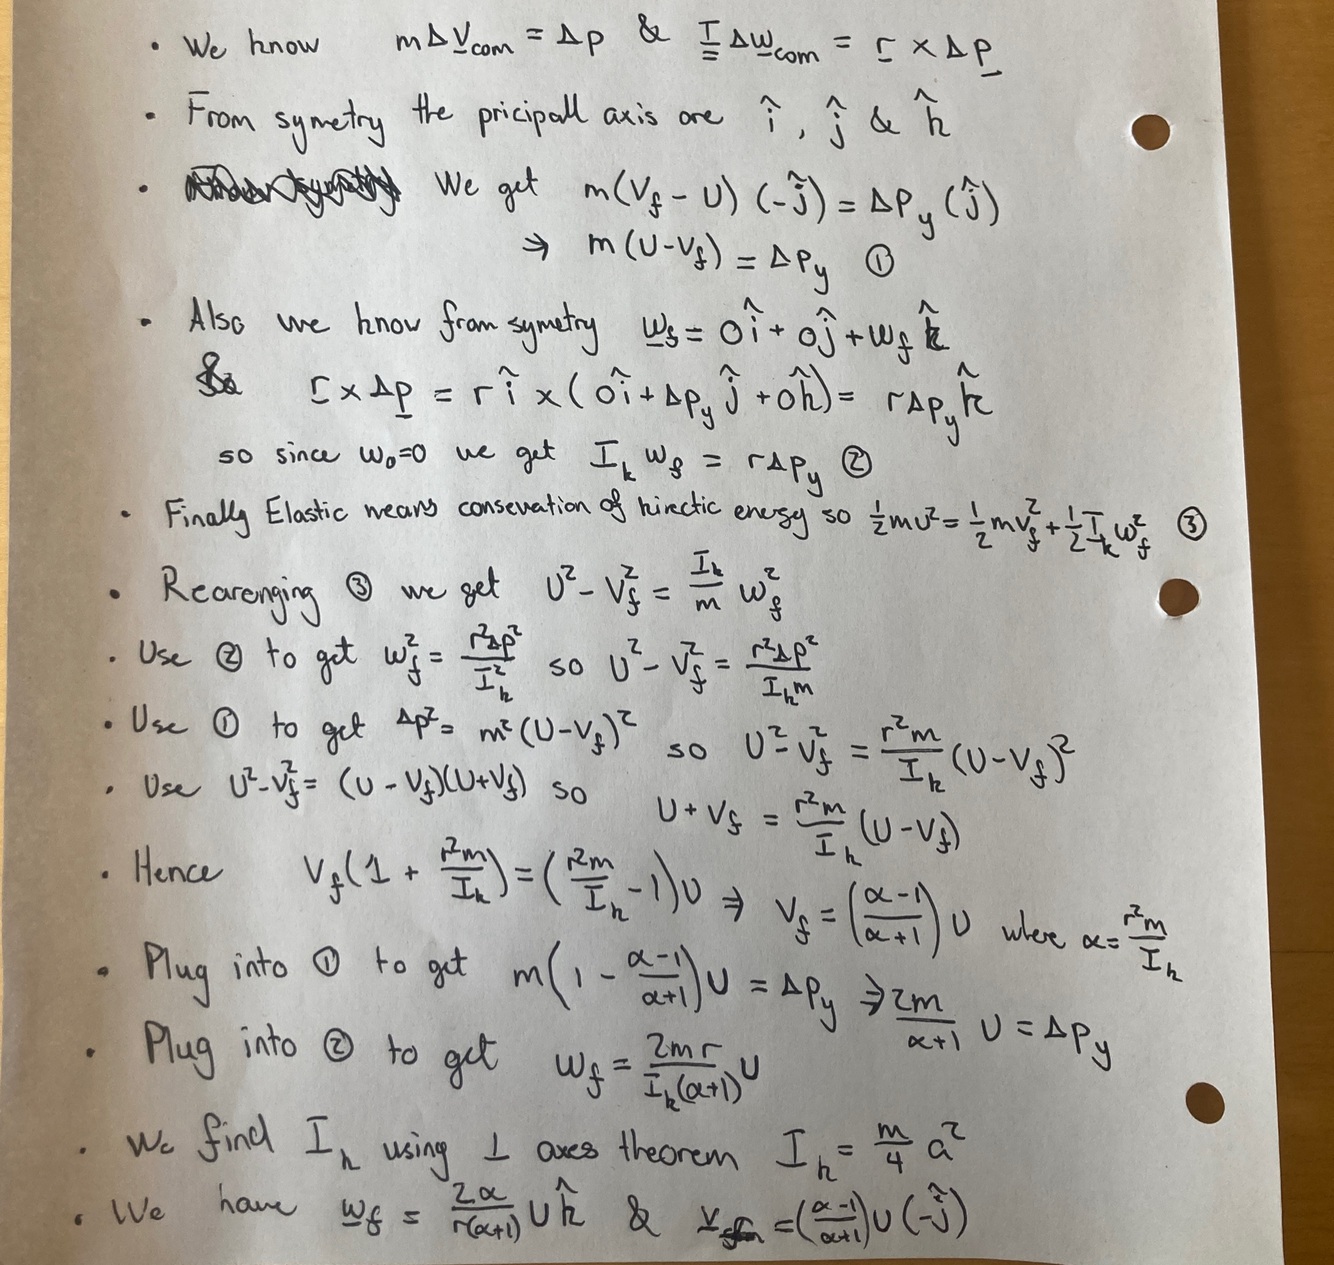 • We know mΔv̲com = Δp & I̳Δω̲com = r̲ × Δp̲
• From symetry the pricipall axis are î, ĵ & k̂
• We get m(Vf - U)(-ĵ) = ΔPy(ĵ)
⇒ m(U-Vf) = ΔPy ①
• Also we know from symetry ω̲f = 0î + 0ĵ + ωf k̂
& r̲ × Δp̲ = rî × (0î + ΔPy ĵ + 0k̂) = rΔPy k̂
so since ω0=0 we get Ik ωf = rΔPy ②
• Finally Elastic means consevation of kinectic energy so ½mU² = ½mVf² + ½Ikωf² ③
• Rearenging ③ we get U² - Vf² = Ik/m ωf²
• Use ② to get ωf² = r²Δp²/Ik² so U² - Vf² = r²Δp²/Ikm
• Use ① to get Δp² = m²(U-Vf)² so U² - Vf² = r²m/Ik (U-Vf)²
• Use U²-Vf² = (U - Vf)(U+Vf) so U + Vf = r²m/Ik (U-Vf)
• Hence Vf(1 + r²m/Ik) = (r²m/Ik - 1)U ⇒ Vf = (α-1/α+1)U where α = r²m/Ik
• Plug into ① to get m(1 - α-1/α+1)U = ΔPy ⇒ 2m/α+1 U = ΔPy
• Plug into ② to get ωf = 2mr/Ik(α+1) U
• We find Ik using ⊥ axes theorem Ik = m/4 a²
• We have ω̲f = 2α/r(α+1) U k̂ & v̲ = (α-1/α+1)U(-ĵ)